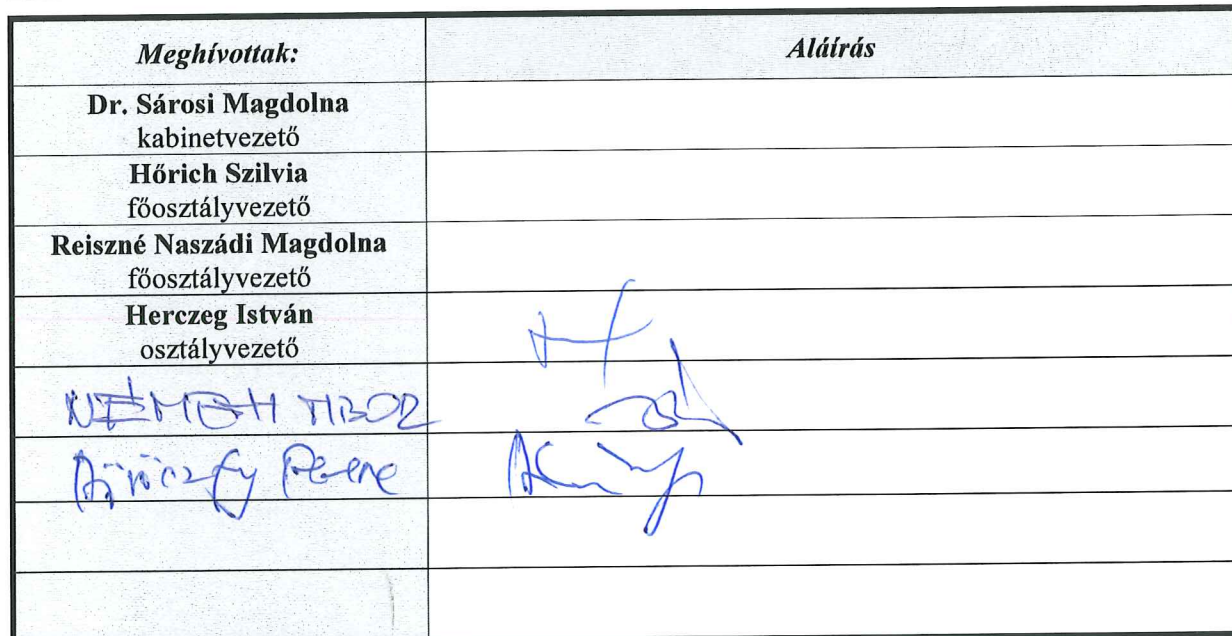 Meghívottak: Aláírás
Dr. Sárosi Magdolna
kabinetvezető
Hőrich Szilvia
főosztályvezető
Reiszné Naszádi Magdolna
főosztályvezető
Herczeg István
osztályvezető
NÉMETH TIBOR